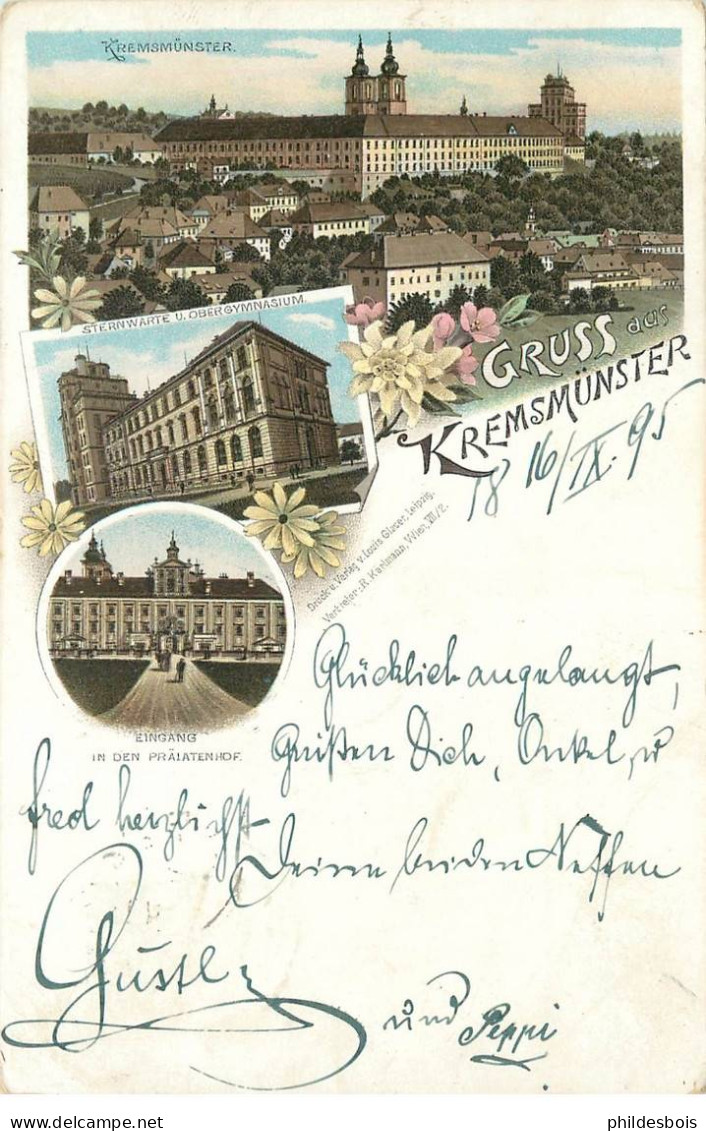 KREMSMÜNSTER.
STERNWARTE U. OBERGYMNASIUM.
GRUSS aus
KREMSMÜNSTER
18 16/IX. 95
Druck u. Verlag v. Louis Glaser, Leipzig.
Vertreter: R. Kathmann, Wien, XII/2.
EINGANG
IN DEN PRÄLATENHOF.
Glücklich angelangt,
Grüßen Dich, Onkel, u
fred herzlichst
Deine beiden Neffen
Gustl
und Peppi
phildesbois